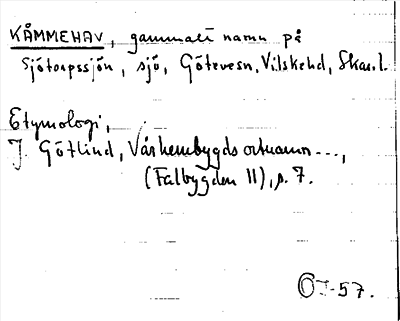 KÅMMEHAV, gammalt namn på
Sjötorpssjön, sjö, Götevesn, Vilskehd, Skar.l.
Etymologi,
J. Götlind, Vår hembygds ortnamn ---,
(Falbygden II), s. 7.
OJ-57.